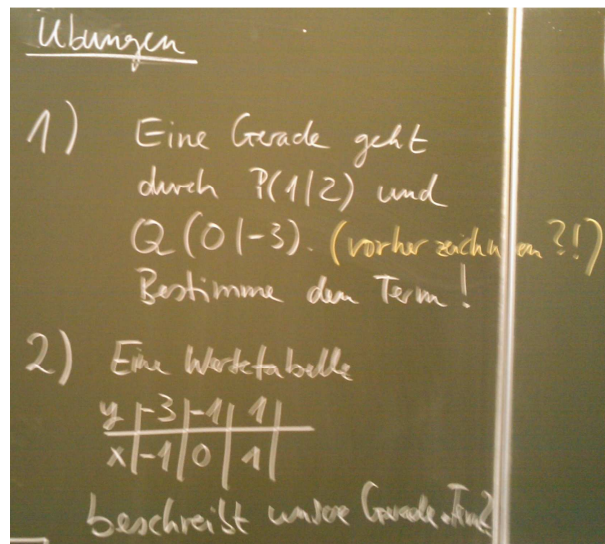 Übungen
1) Eine Gerade geht
durch P(1|2) und
Q(0|-3). (vorher zeichnen?!)
Bestimme den Term!
2) Eine Wertetabelle
y | -3 | -1 | 1 |
x | -1 | 0 | 1 |
beschreibt unsere Gerade. Term?